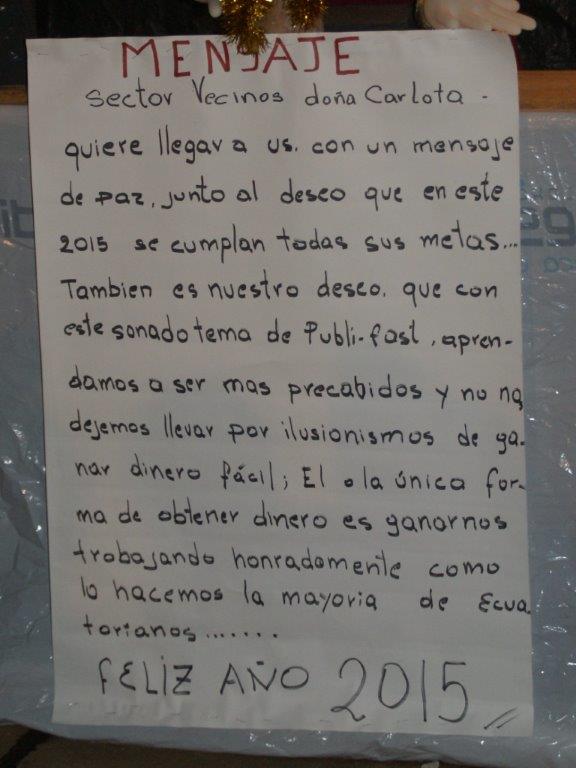 MENSAJE
Sector Vecinos doña Carlota.
quiere llegar a us. con un mensaje
de paz, junto al deseo que en este
2015 se cumplan todas sus metas...
Tambien es nuestro deseo. que con
este sonado tema de Publi-fast, apren-
damos a ser mas precabidos y no no
dejemos llevar por ilusionismos de ga-
nar dinero fácil; El o la única for-
ma de obtener dinero es ganarnos
trabajando honradamente como
lo hacemos la mayoria de Ecua
torianos.......
FELIZ AÑO 2015